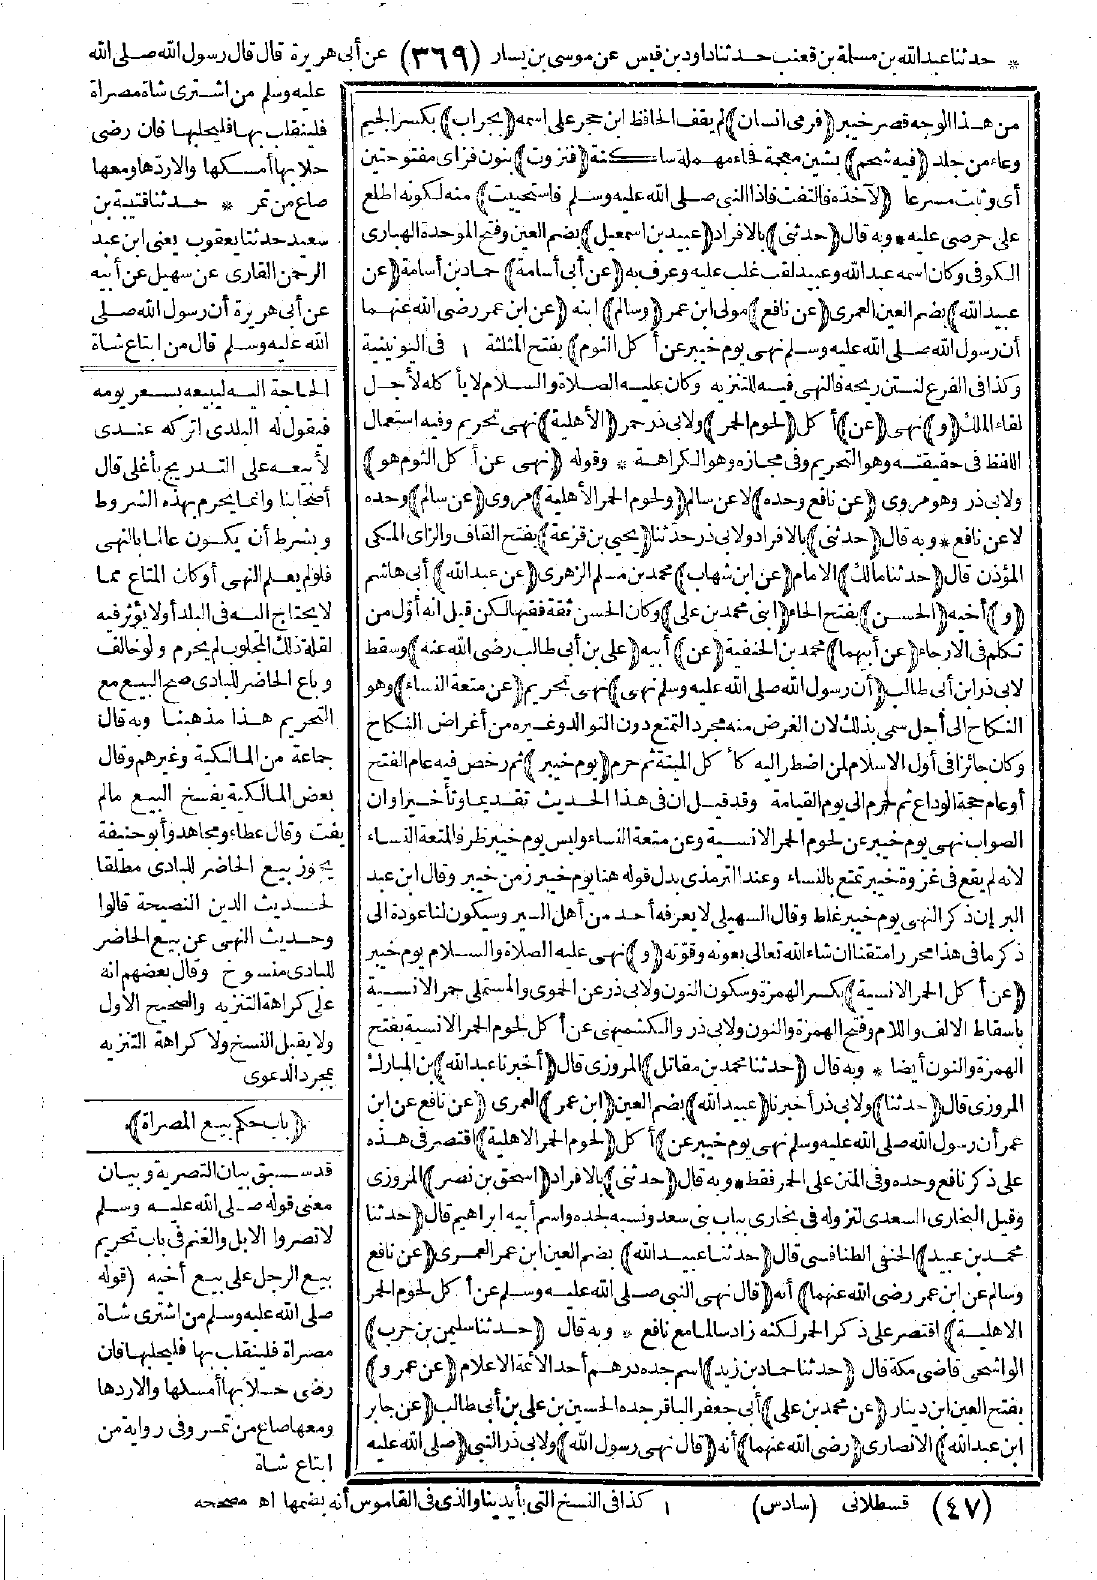 * حدثنا عبد الله بن مسلمة بن قعنب حدثنا داود بن قيس عن موسى بن يسار (٣٦٩) عن أبي هريرة قال قال رسول الله صلى الله
عليه وسلم من اشترى شاة مصراة
فلينقلب بها فليحلبها فان رضى
حلابها أمسكها والا ردها ومعها
صاع من تمر * حدثنا قتيبة بن
سعيد حدثنا يعقوب يعنى ابن عبد
الرحمن القارى عن سهيل عن أبيه
عن أبى هريرة أن رسول الله صلى
الله عليه وسلم قال من ابتاع شاة
من هذا الوجه قصر خيبر (فرمى انسان) لم يقف الحافظ ابن حجر على اسمه (بجراب) بكسر الجيم
وعاء من جلد (فيه شحم) بشين معجمة فحاء مهملة ساكنة (فنزوت) بنون فزاى مفتوحتين
أى وثبت مسرعا (لآخذه فالتفت فاذا النبى صلى الله عليه وسلم فاستحييت) منه لكونه اطلع
على حرصى عليه * وبه قال (حدثنى) بالافراد (عبيد بن اسمعيل) بضم العين وفتح الموحدة الهبارى
الكوفى وكان اسمه عبد الله وعبيد لقب غلب عليه وعرف به (عن أبى أسامة) حماد بن أسامة (عن
عبيد الله) بضم العين العمرى (عن نافع) مولى ابن عمر (وسالم) ابنه (عن ابن عمر رضى الله عنهما
أن رسول الله صلى الله عليه وسلم نهى يوم خيبر عن أكل الثوم) بفتح المثلثة ١ فى اليونينية
وكذا فى الفرع لنتن ريحه فالنهى فيه للتنزيه وكان عليه الصلاة والسلام لا يأكله لأجل
لقاء الملك (و) نهى (عن) أكل (لحوم الحمر) ولابى ذر حمر (الأهلية) نهى تحريم وفيه استعمال
اللفظ فى حقيقته وهو التحريم وفى مجازه وهو الكراهة * وقوله (نهى عن أكل الثوم هو)
ولابى ذر وهو مروى (عن نافع وحده) لا عن سالم (ولحوم الحمر الأهلية) مروى (عن سالم) وحده
لا عن نافع * وبه قال (حدثنى) بالافراد ولابى ذر حدثنا (يحيى بن قزعة) بفتح القاف والزاى المكى
المؤذن قال (حدثنا مالك) الامام (عن ابن شهاب) محمد بن مسلم الزهرى (عن عبد الله) أبى هاشم
(و) أخيه (الحسن) بفتح الحاء (ابنى محمد بن على) وكان الحسن ثقة فقيها لكن قيل انه أول من
تكلم فى الارجاء (عن أبيهما) محمد بن الحنفية (عن) أبيه (على بن أبى طالب رضى الله عنه) وسقط
لابى ذر ابن أبى طالب (أن رسول الله صلى الله عليه وسلم نهى) نهى تحريم (عن متعة النساء) وهو
النكاح الى أجل سمى بذلك لان الغرض منه مجرد التمتع دون التوالد وغيره من أغراض النكاح
وكان جائزا فى أول الاسلام لمن اضطر اليه كأكل الميتة ثم حرم (يوم خيبر) ثم رخص فيه عام الفتح
أو عام حجة الوداع ثم حرم الى يوم القيامة وقد قيل ان فى هذا الحديث تقديما وتأخيرا وان
الصواب نهى يوم خيبر عن لحوم الحمر الانسية وعن متعة النساء وليس يوم خيبر ظرفا لمتعة النساء
لانه لم يقع فى غزوة خيبر تمتع بالنساء وعند الترمذى بدل قوله هنا يوم خيبر زمن خيبر وقال ابن عبد
البر إن ذكر النهى يوم خيبر غلط وقال السهيلى لا يعرفه أحد من أهل السير وسيكون لنا عودة الى
ذكر ما فى هذا محررا متقنا ان شاء الله تعالى بعونه وقوته (و) نهى عليه الصلاة والسلام يوم خيبر
(عن أكل الحمر الانسية) بكسر الهمزة وسكون النون ولابى ذر عن الحموى والمستملى حمر الانسية
باسقاط الالف واللام وفتح الهمزة والنون ولابى ذر والكشميهنى عن أكل لحوم الحمر الانسية بفتح
الهمزة والنون أيضا * وبه قال (حدثنا محمد بن مقاتل) المروزى قال (أخبرنا عبد الله) بن المبارك
المروزى قال (حدثنا) ولابى ذر أخبرنا (عبيد الله) بضم العين (ابن عمر) العمرى (عن نافع عن ابن
عمر أن رسول الله صلى الله عليه وسلم نهى يوم خيبر عن) أكل (لحوم الحمر الاهلية) اقتصر فى هذه
على ذكر نافع وحده وفى المتن على الحمر فقط * وبه قال (حدثنى) بالافراد (اسحق بن نصر) المروزى
وقيل البخارى السعدى لنزوله فى بخارى بباب بنى سعد ونسبه لجده واسم أبيه ابراهيم قال (حدثنا
محمد بن عبيد) الحنفى الطنافسى قال (حدثنا عبيد الله) بضم العين ابن عمر العمرى (عن نافع
وسالم عن ابن عمر رضى الله عنهما) أنه (قال نهى النبى صلى الله عليه وسلم عن أكل لحوم الحمر
الاهلية) اقتصر على ذكر الحمر لكنه زاد سالما مع نافع * وبه قال (حدثنا سليمن بن حرب)
الواشحى قاضى مكة قال (حدثنا حماد بن زيد) اسم جده درهم أحد الأئمة الاعلام (عن عمرو)
بفتح العين ابن دينار (عن محمد بن على) أبى جعفر الباقر جده الحسين بن على بن أبى طالب (عن جابر
ابن عبد الله) الانصارى (رضى الله عنهما) أنه (قال نهى رسول الله) ولابى ذر النبى (صلى الله عليه
الحاجة اليه ليبيعه بسعر يومه
فيقول له البلدى اتركه عندى
لأبيعه على التدريج بأغلى قال
أصحابنا وانما يحرم بهذه الشروط
وبشرط أن يكون عالما بالنهى
فلو لم يعلم النهى أو كان المتاع مما
لا يحتاج اليه فى البلد أو لا يؤثر فيه
لقلة ذلك المجلوب لم يحرم ولو خالف
وباع الحاضر للبادى صح البيع مع
التحريم هذا مذهبنا وبه قال
جماعة من المالكية وغيرهم وقال
بعض المالكية يفسخ البيع مالم
يفت وقال عطاء ومجاهد وأبو حنيفة
يجوز بيع الحاضر للبادى مطلقا
لحديث الدين النصيحة قالوا
وحديث النهى عن بيع الحاضر
للبادى منسوخ وقال بعضهم انه
على كراهة التنزيه والصحيح الاول
ولا يقبل النسخ ولا كراهة التنزيه
بمجرد الدعوى
(باب حكم بيع المصراة)
قد سبق بيان التصرية وبيان
معنى قوله صلى الله عليه وسلم
لا تصروا الابل والغنم فى باب تحريم
بيع الرجل على بيع أخيه (قوله
صلى الله عليه وسلم من اشترى شاة
مصراة فلينقلب بها فليحلبها فان
رضى حلابها أمسكها والا ردها
ومعها صاع من تمر وفى رواية من
ابتاع شاة
(٤٧) قسطلانى (سادس) ١ كذا فى النسخ التى بأيدينا والذى فى القاموس أنه بضمها اه مصححه